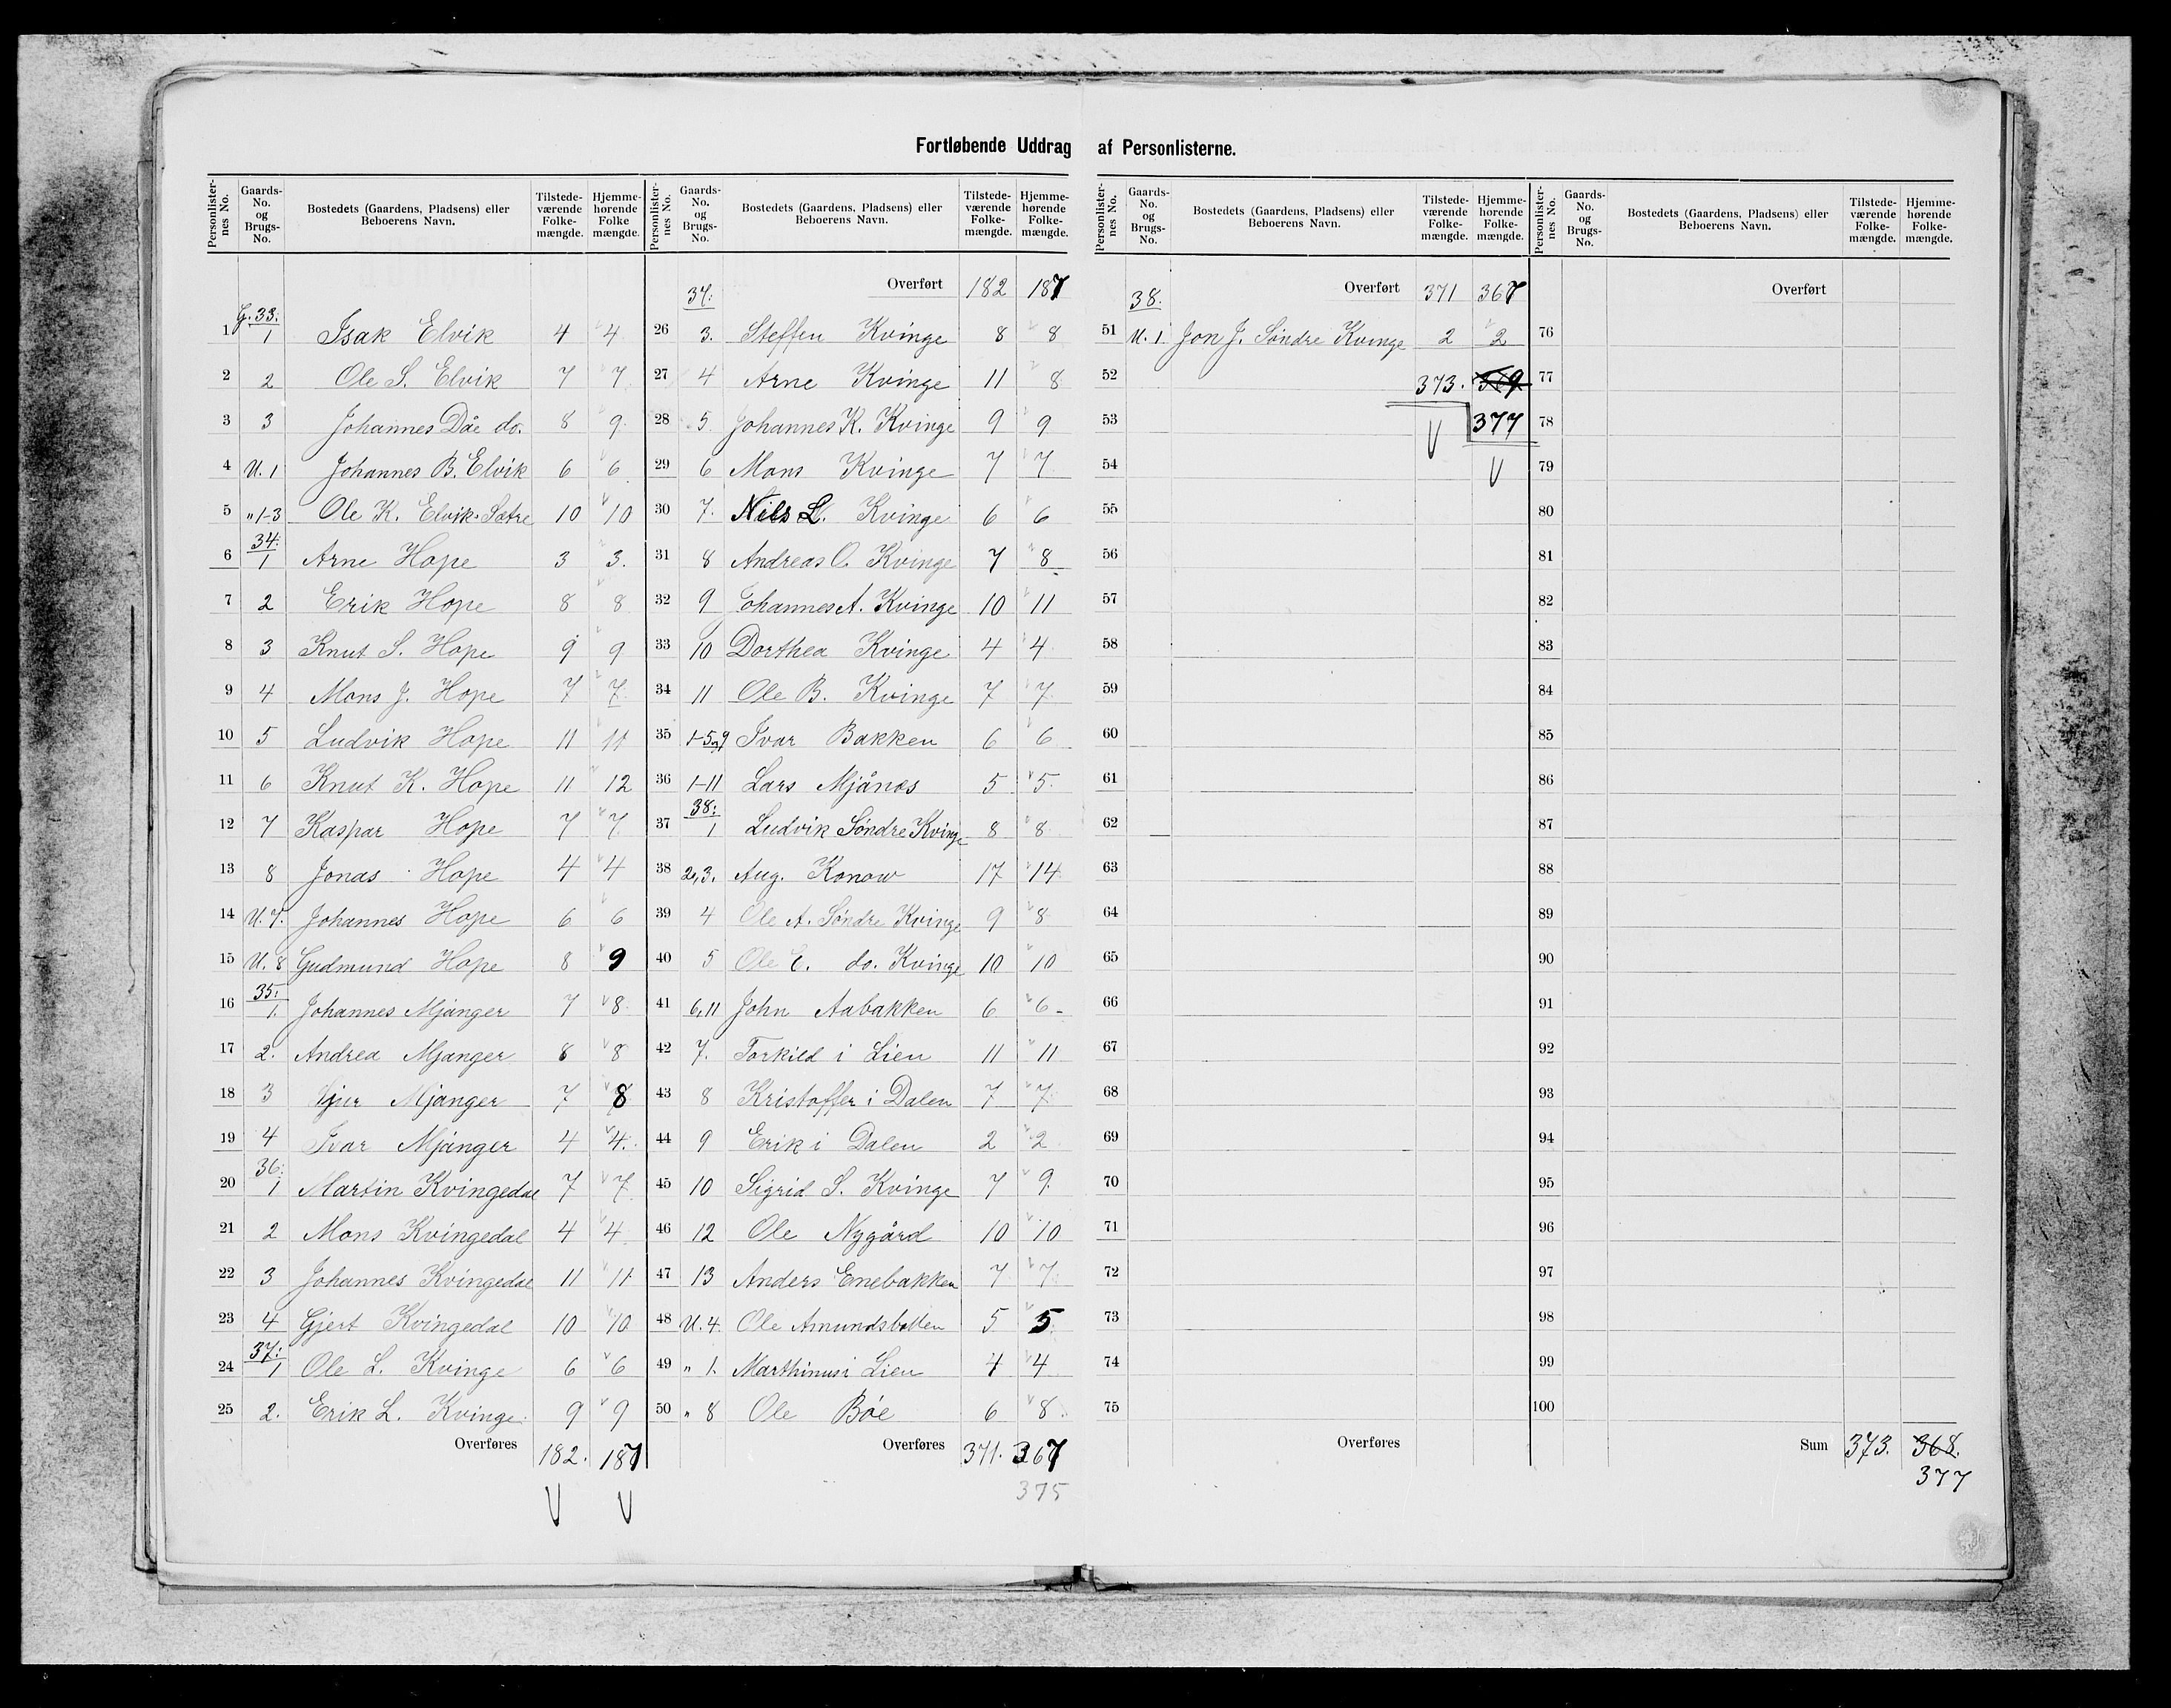 Fortløbende Uddrag af Personlisterne.
Personlister-nes No. | Gaards-No. og Brugs-No. | Bostedets (Gaardens, Pladsens) eller Beboerens Navn. | Tilstede-værende Folke-mængde. | Hjemme-hørende Folke mængde.
G. 33:
1 1 Isak Elvik 4 4
2 2 Ole S. Elvik 7 7
3 3 Johannes Dåe do. 8 9
4 U. 1 Johannes B. Elvik 6 6
5 " 1-3 Ole K. Elvik-Sætre 10 10
34:
6 1 Arne Hope 3 3.
7 2 Erik Hope 8 8
8 3 Knut S. Hope 9 9
9 4 Mons J. Hope 7 7
10 5 Ludvik Hope 11 11
11 6 Knut K. Hope 11 12
12 7 Kaspar Hope 7 7
13 8 Jonas Hope 4 4
14 U. 7. Johannes Hope 6 6
15 U. 8 Gudmund Hope 8 9
35:
16 1. Johannes Mjanger 7 8
17 2. Andrea Mjanger 8 8
18 3 Mjanger 7 8
19 4 Ivar Mjanger 4 4.
36:
20 1 Martin Kvingedal 7 7
21 2 Mons Kvingedal 4 4
22 3 Johannes Kvingedal 11 11
23 4 Gjert Kvingedal 10 10
37:
24 1 Ole L. Kvinge 6 6
25 2. Erik L. Kvinge 9 9
Overføres 182. 187
Personlister-nes No. | Gaards-No. og Brugs-No. | Bostedets (Gaardens, Pladsens) eller Beboerens Navn. | Tilstede-værende Folke-mængde. | Hjemme-hørende Folke-mængde.
37: Overført 182 187
26 3. Steffen Kvinge 8 8
27 4 Arne Kvinge 11 8
28 5. Johannes K. Kvinge 9 9
29 6 Mons Kvinge 7 7
30 7. Nils L. Kvinge 6 6
31 8 Andreas O. Kvinge 7 8
32 9 Johannes A. Kvinge 10 11
33 10 Dorthea Kvinge 4 4
34 11 Ole B. Kvinge 7 7
35 1-5 og 9 Ivar Bakken 6 6
36 1-11 Lars Mjånes 5 5.
38:
37 1 Ludvik Søndre Kvinge 8 8
38 2,3. Aug. Konow 17 14
39 4 Ole A. Søndre Kvinge 9 8
40 5 Ole E. do. Kvinge 10 10
41 6,11 John Aabakken 6 6
42 7. Torkild i Lien 11 11
43 8 Kristoffer i Dalen 7 7
44 9 Erik i Dalen 2 2
45 10 Sigrid S. Kvinge 7 9
46 12 Ole Nygård 10 10
47 13 Anders Enebakken 7 7
48 U. 4. Ole Amundsbotten 5 5
49 " 1. Marthinus i Lien 4 4
50 " 8 Ole Bøe 6 8
Overføres 371. 367
375
Personlister-nes No. | Gaards-No. og Brugs-No. | Bostedets (Gaardens, Pladsens) eller Beboerens Navn. | Tilstede-værende Folke-mængde. | Hjemme-hørende Folke-mængde.
38. Overført 371 367
51 U. 1. Jon J. Søndre Kvinge 2 2
52 373. 369
53 377
54
55
56
57
58
59
60
61
62
63
64
65
66
67
68
69
70
71
72
73
74
75
Overføres
Personlister-nes No. | Gaards-No. og Brugs-No. | Bostedets (Gaardens, Pladsens) eller Beboerens Navn. | Tilstede-værende Folke-mængde. | Hjemme-hørende Folke-mængde.
Overført
76
77
78
79
80
81
82
83
84
85
86
87
88
89
90
91
92
93
94
95
96
97
98
99
100
Sum 373. 368.
377